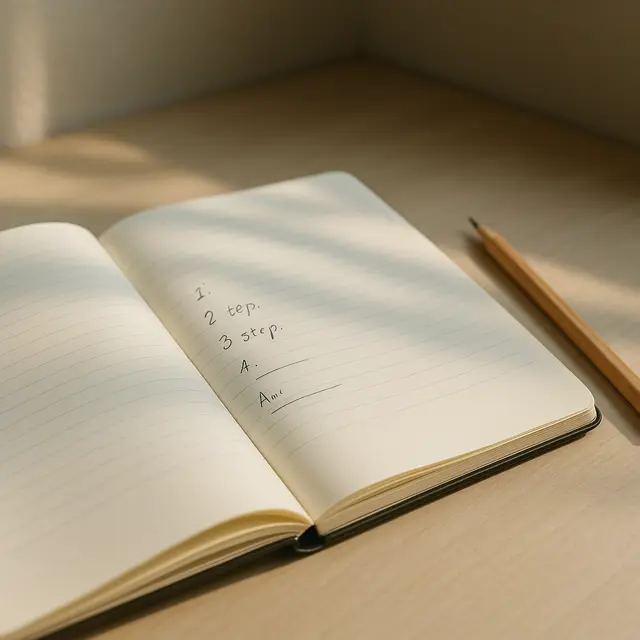 1.
2 tep.
3 step.
A.